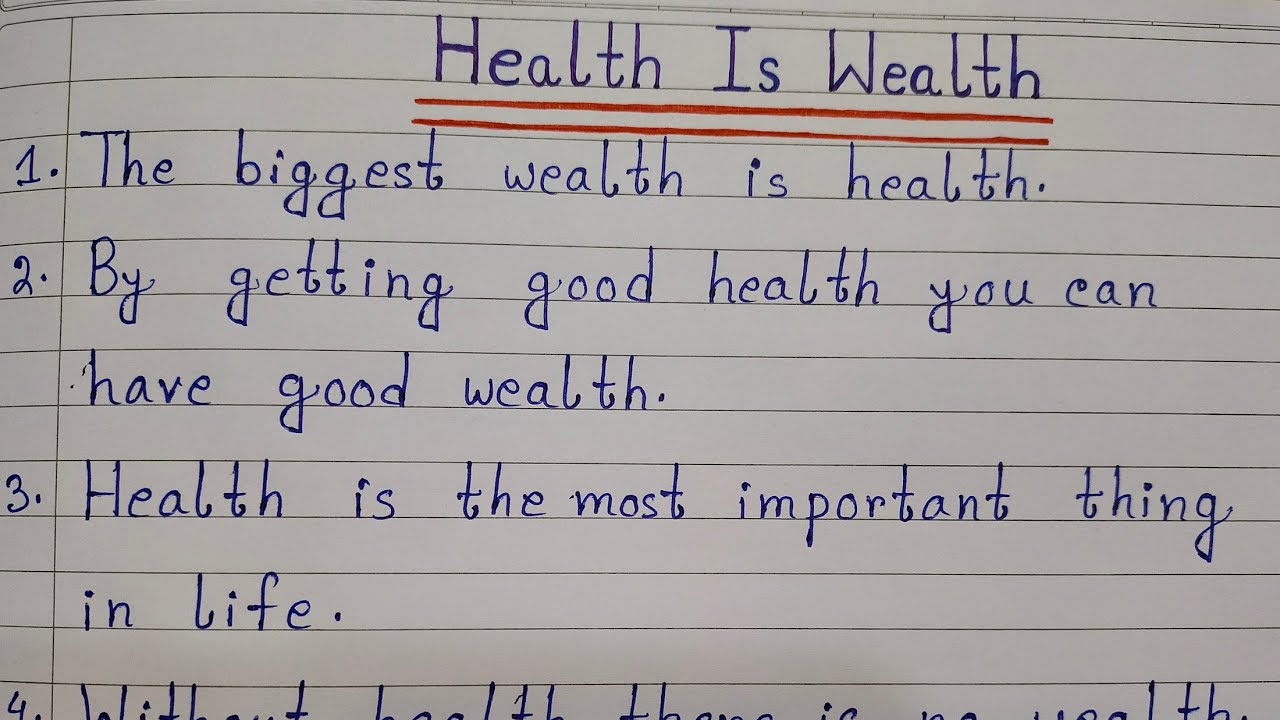 Health Is Wealth
1. The biggest wealth is health.
2. By getting good health you can
have good wealth.
3. Health is the most important thing
in life.
4. Without health there is no wealth.